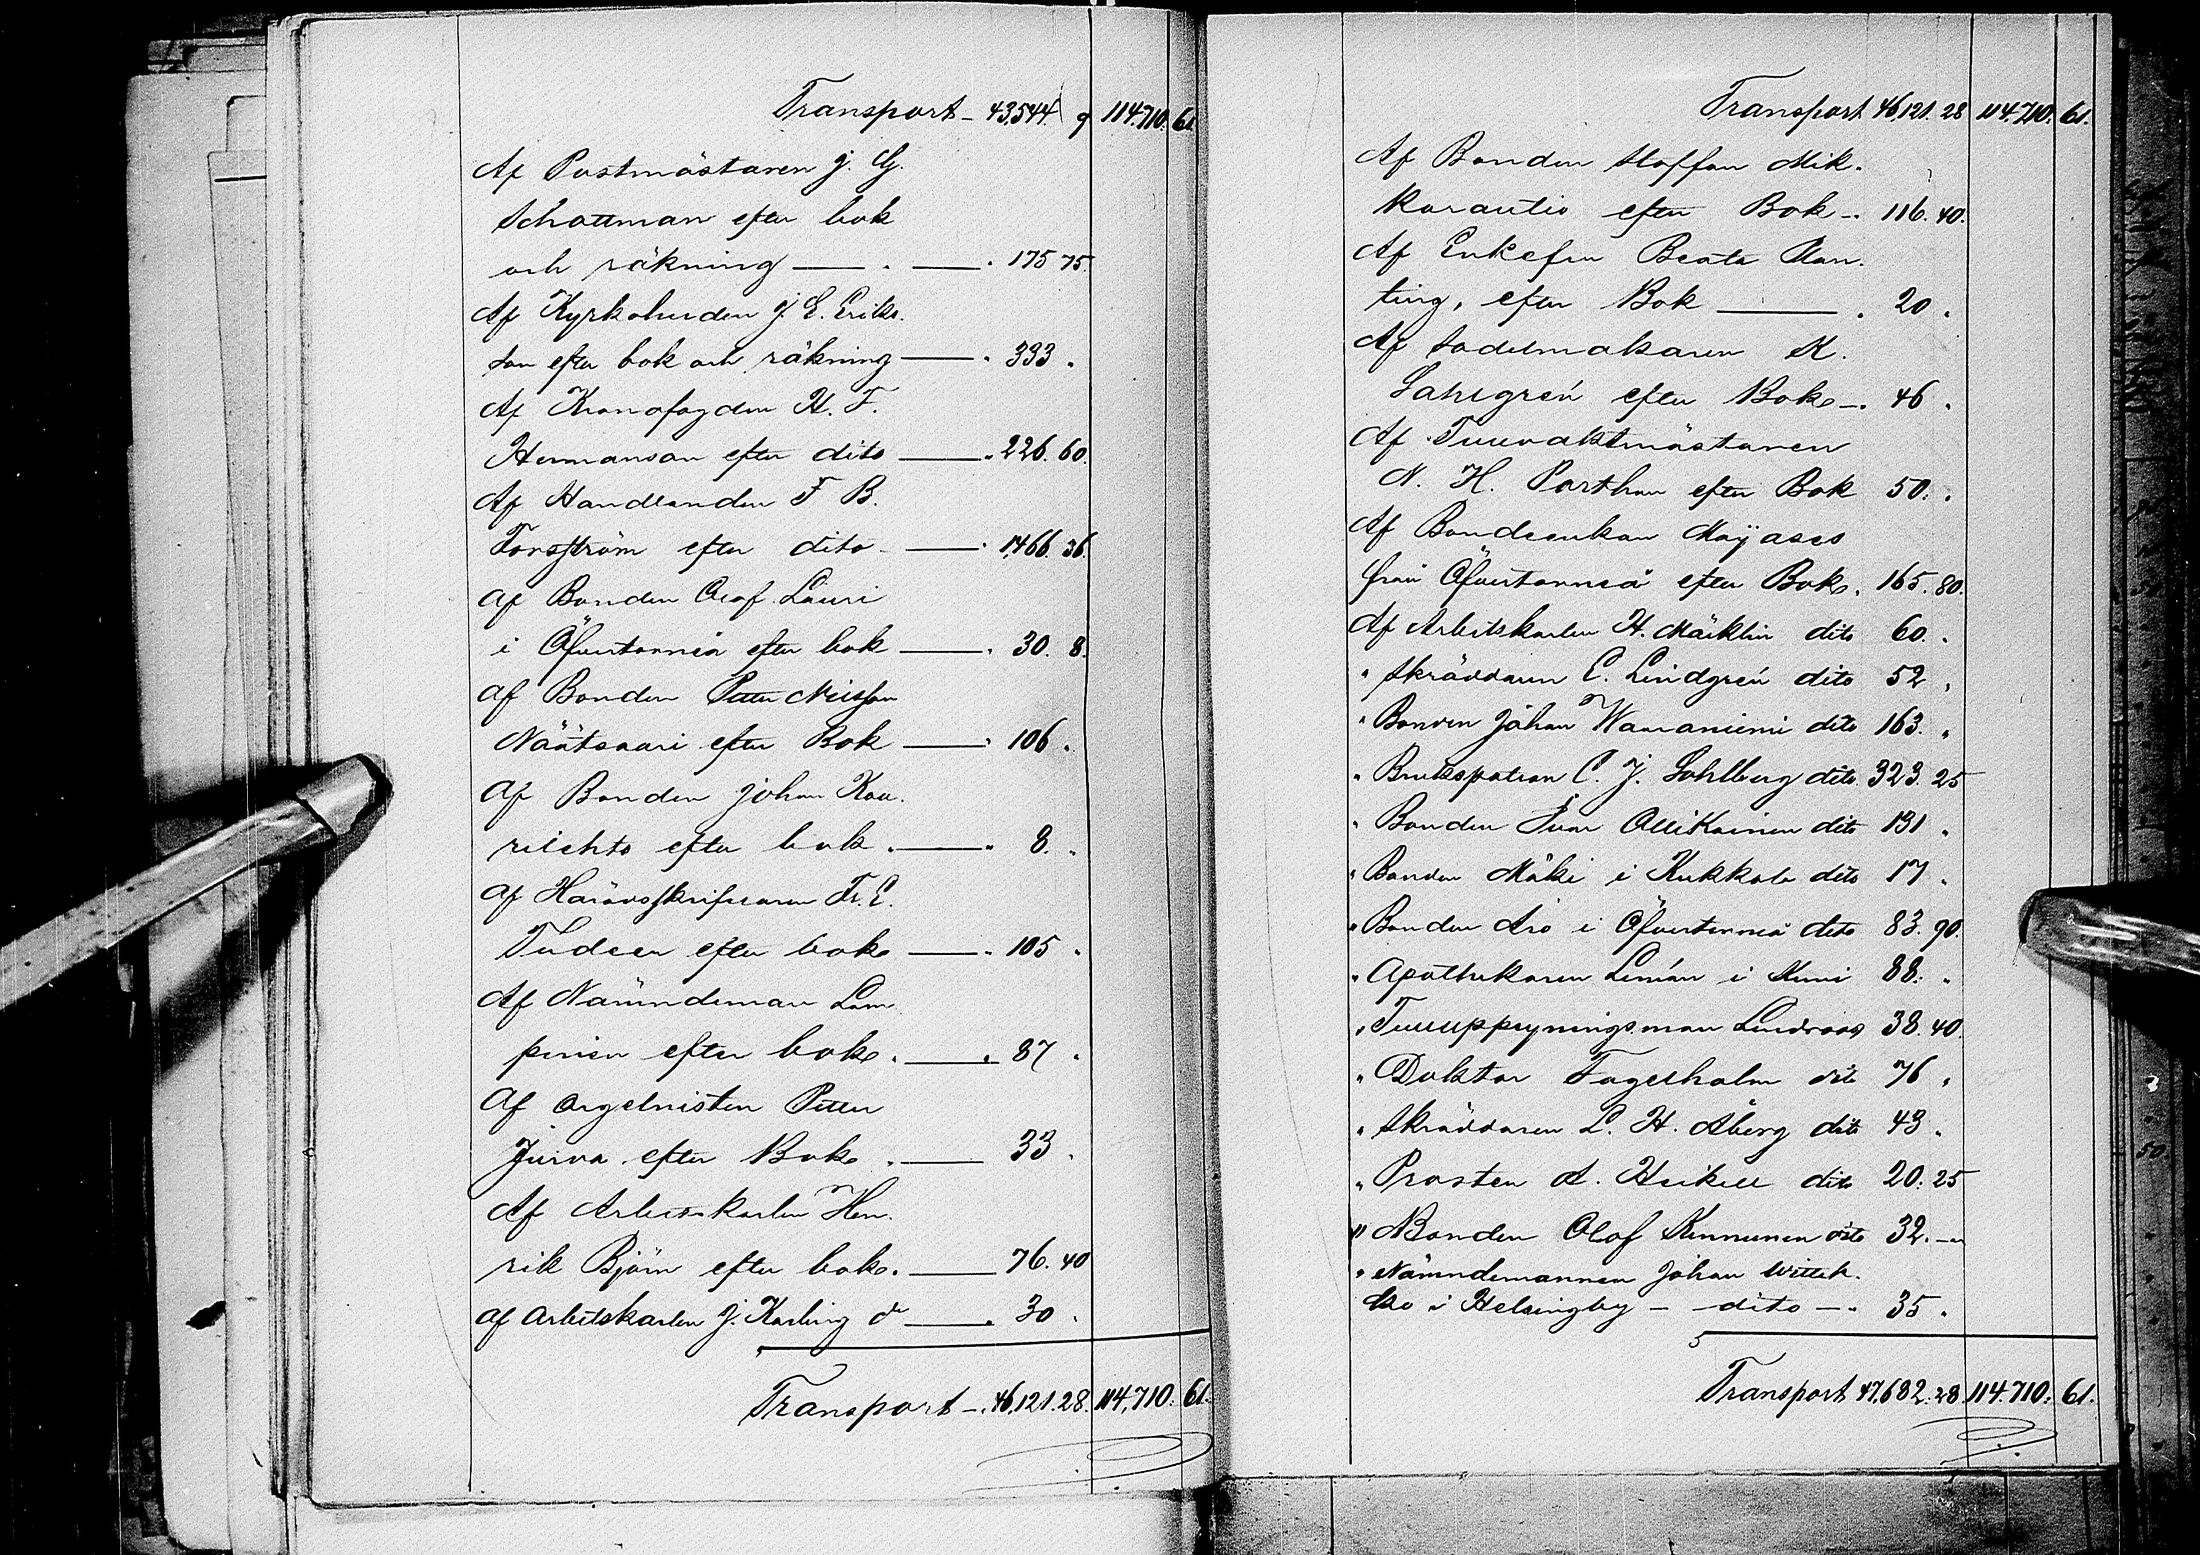 Transport - 43,544. 9 114,710. 61
Af Postmästaren J. G.
Schattman efter bok
och räkning — . — . 175 75.
Af Kyrkoherden J. E. Eriks.
son efter bok och räkning — . 333 .
Af Kronofogden H. F.
Hermanson efter dito — . 226. 60.
Af Handlanden F B.
Forsström efter dito - — . 1,466. 36.
Af Bonden Olof Lauri
i Öfvertorneå efter bok — . 30. 8.
Af Bonden Petter Nilsson
Näätsaari efter Bok — . 106 .
Af Bonden Johan Kou.
rilehto efter bok . — . 8. .
Af Häradsskrifvaren Fr. E.
Tudeer efter bok — . 105 .
Af Nämndeman Lam
pinen efter bok . — . 87 .
Af Orgelnisten Petter
Jurva efter Bok . — 33 .
Af Arbetskarlen Hen.
rik Björn efter bok. — 76. 40
Af Arbetskarlen J. Karling do — . 30 .
Transport - . 46,121. 28. 114,710. 61.
Transport 46,121. 28 114,710. 61.
Af Bonden Staffan Mik.
karautio efter Bok - . 116. 40.
Af Enkefru Beata Plan.
ting, efter Bok — . 20 .
Af Sadelmakaren K.
Sahlgrén efter Bok - . 46 .
Af Tullvaktmästaren
N. H. Porthan efter Bok 50. .
Af Bondeenkan Maijases
från Öfvertorneå efter Bok . 165. 80.
Af Arbetskarlen H. Märklin dito 60. .
" Skräddaren E. Lindgrén dito 52 .
" Bonden Johan Waaraniemi dito 163. .
" Brukspatron C. J. Sohlberg dito 323. 25
" Bonden Ivar Ollikainen dito 131 .
" Bonden Mäki i Kukkola dito 17 .
" Bonden Aro i Öfvertorneå dito 83. 90.
" Apothekaren Lenian i Kemi 88. .
" Tulluppsyningsman Lindroos 38. 40.
" Doktor Fagerholm dito 76 .
" Skräddaren L. H. Åberg dito 43 .
" Prosten A. Heikell dito 20. 25
" Bonden Olof Kinnunen dito 32. -
" Nämndemannen Johan Wittik.
ko i Helsingby - - dito - . 35 .
Transport 47,682. 28. 114,710. 61.